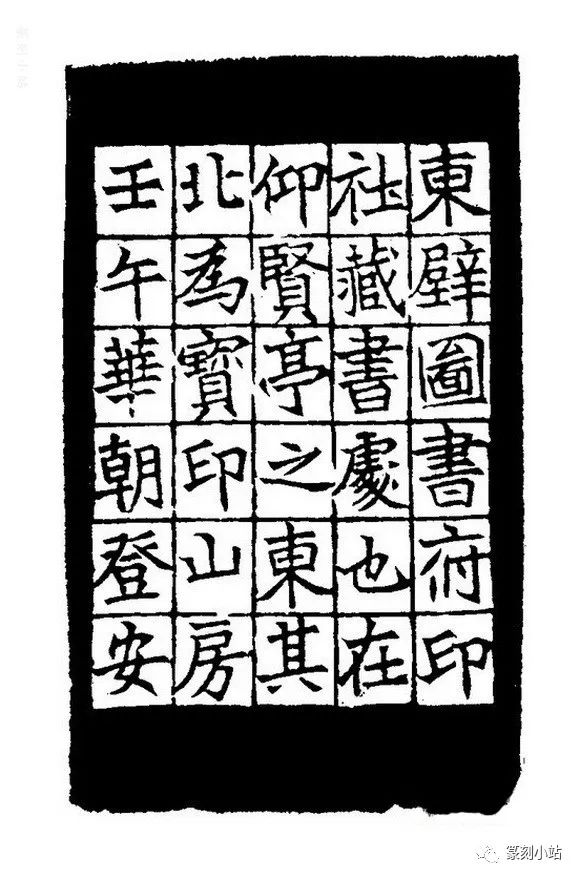 東壁圖書府印
社藏書處也在
仰賢亭之東其
北為寶印山房
壬午華朝登安
篆刻小站
篆刻小站